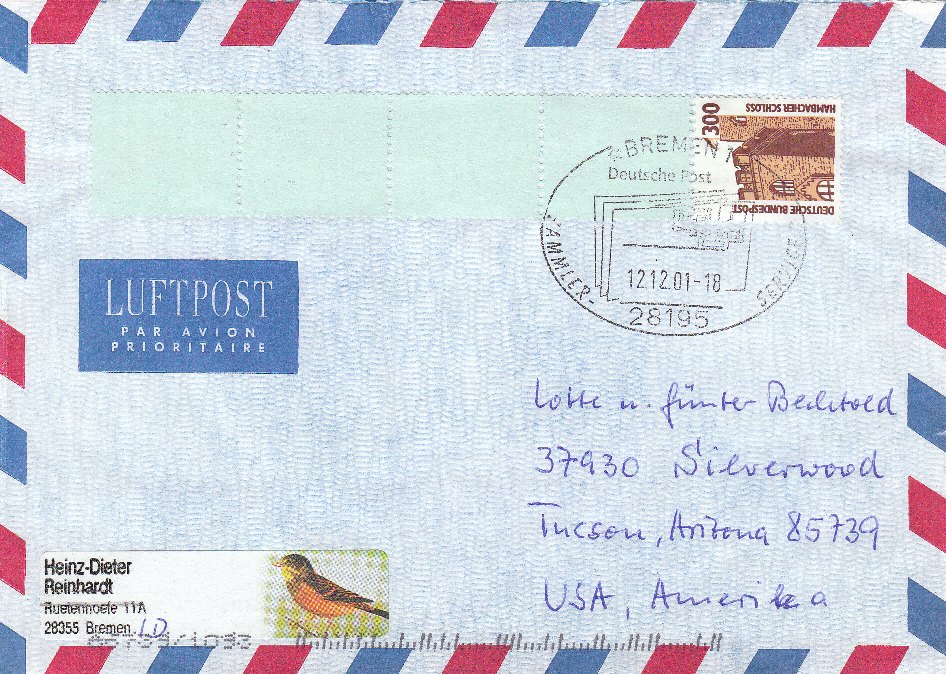 300
HAMBACHER SCHLOSS
DEUTSCHE BUNDESPOST
BREMEN 1
Deutsche Post
SAMMLER-SERVICE
12.12.01-18
28195
LUFTPOST
PAR AVION
PRIORITAIRE
Lotte u. Günter Bechtold
37930 Silverwood
Tucson, Arizona 85739
USA, Amerika
Heinz-Dieter
Reinhardt
Ruetenhoefe 11A
28355 Bremen